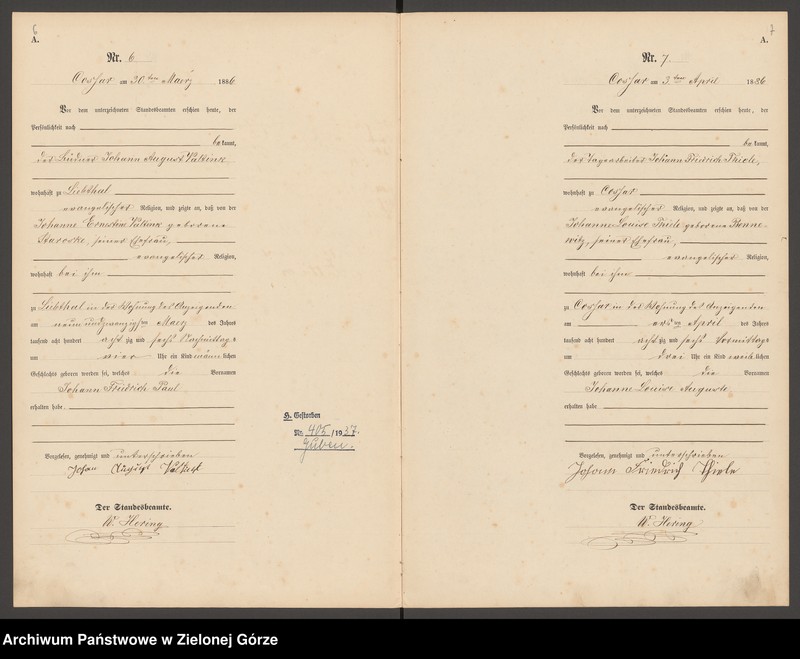 6
A.
Nr. 6.
Cossar am 30ten Maerz 1886.
Vor dem unterzeichneten Standesbeamten erschien heute, der
Persönlichkeit nach
bekannt,
der Büdner Johann August
wohnhaft zu Liebthal
evangelischer Religion, und zeigte an, daß von der
Johanne Ernestine geborene
Staroske, seiner Ehefrau,
evangelischer Religion,
wohnhaft bei ihm
zu Liebthal in der Wohnung des Anzeigenden
am neun und zwanzigsten Maerz des Jahres
tausend acht hundert achtzig und sechs Nachmittags
um vier Uhr ein Kind männlichen
Geschlechts geboren worden sei, welches die Vornamen
Johann Friedrich Paul
erhalten habe.
Vorgelesen, genehmigt und unterschrieben
Johan August
Der Standesbeamte.
W. Hering
H. Gestorben
Nr. 405/1937.
Guben.
7
A.
Nr. 7.
Cossar am 3ten April 1886
Vor dem unterzeichneten Standesbeamten erschien heute, der
Persönlichkeit nach
bekannt,
der Tagearbeiter Johann Friedrich Thiele,
wohnhaft zu Cossar
evangelischer Religion, und zeigte an, daß von der
Johanne Louise Thiele geborene Benne-
witz, seiner Ehefrau,
evangelischer Religion,
wohnhaft bei ihm
zu Cossar in der Wohnung des Anzeigenden
am ersten April des Jahres
tausend acht hundert achtzig und sechs Vormittags
um drei Uhr ein Kind weiblichen
Geschlechts geboren worden sei, welches die Vornamen
Johanne Louise Auguste
erhalten habe
Vorgelesen, genehmigt und unterschrieben
Johann Friedrich Thiele
Der Standesbeamte.
W. Hering
Archiwum Państwowe w Zielonej Górze